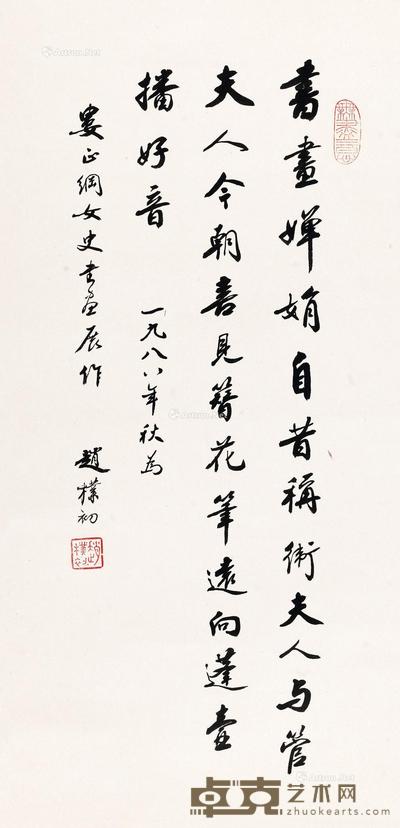 書畫嬋娟自昔稱衛夫人与管
夫人今朝喜見簪花筆遠向蓬壺
播好音 一九八八年秋為
婁正綱女史书画展作 趙樸初
趙樸初
卓克艺术网
zhuokearts.com